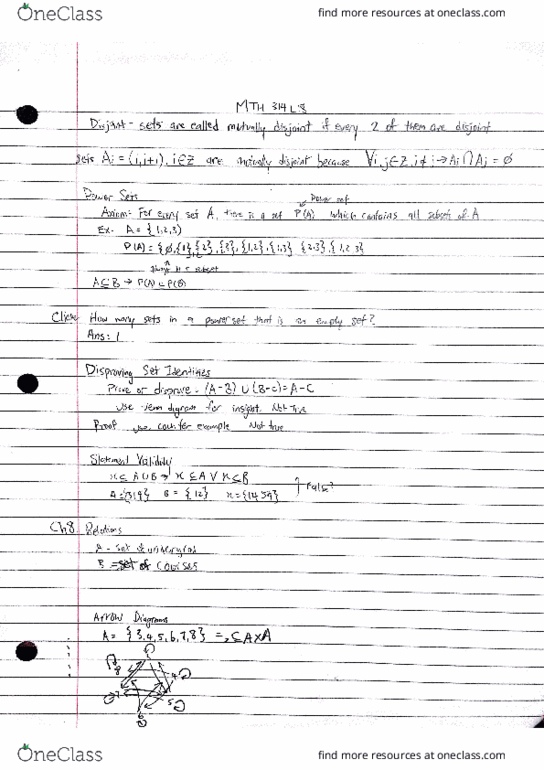 OneClass
find more resources at oneclass.com
MTH 314 L8
Disjoint - sets are called mutually disjoint if every 2 of them are disjoint
sets Ai = (i, i+1), i∈Z are mutually disjoint because ∀i,j∈Z, i≠j → Ai ∩ Aj = ∅
Power Sets
Power set
Axiom: For every set A, there is a set P(A) which contains all subsets of A
Ex. A = {1,2,3}
P(A) = {∅, {1}, {2}, {3}, {1,2}, {1,3} {2,3}, {1,2,3}
A⊆B → P(A) ⊆ P(B)
How many sets in a powerset that is an empty set?
Ans: 1
Disproving Set Identities
Prove or disprove - (A-B) ∪ (B-C) = A-C
Use venn diagram for insight. Not true
Proof use counter example Not true
Statement Validity
x⊆A∪B → x⊆A ∨ x⊆B
B = {12}
False?
Ch8. Relations
A - set of
B = set of courses
Arrow Diagrams
A = {3,4,5,6,7,8} ⊆ A×A
8
4
7
5
6
OneClass
find more resources at oneclass.com